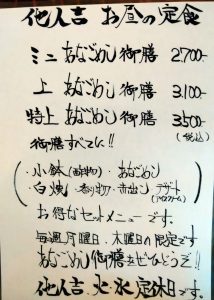 他人吉 お昼の定食
ミニ あなごめし御膳 2.700-
上 あなごめし御膳 3.100
特上 あなごめし御膳 3.500
(税込)
御膳すべてに!!
・小鉢(酢物)・あなごめし
・白焼・香り物・赤出し・デザート
(アイスクリーム)
お得なセットメニューです。
毎週月曜日、木曜日の限定です
あなごめし御膳をぜひどうぞ!!
他人吉 火・水 定休日です。